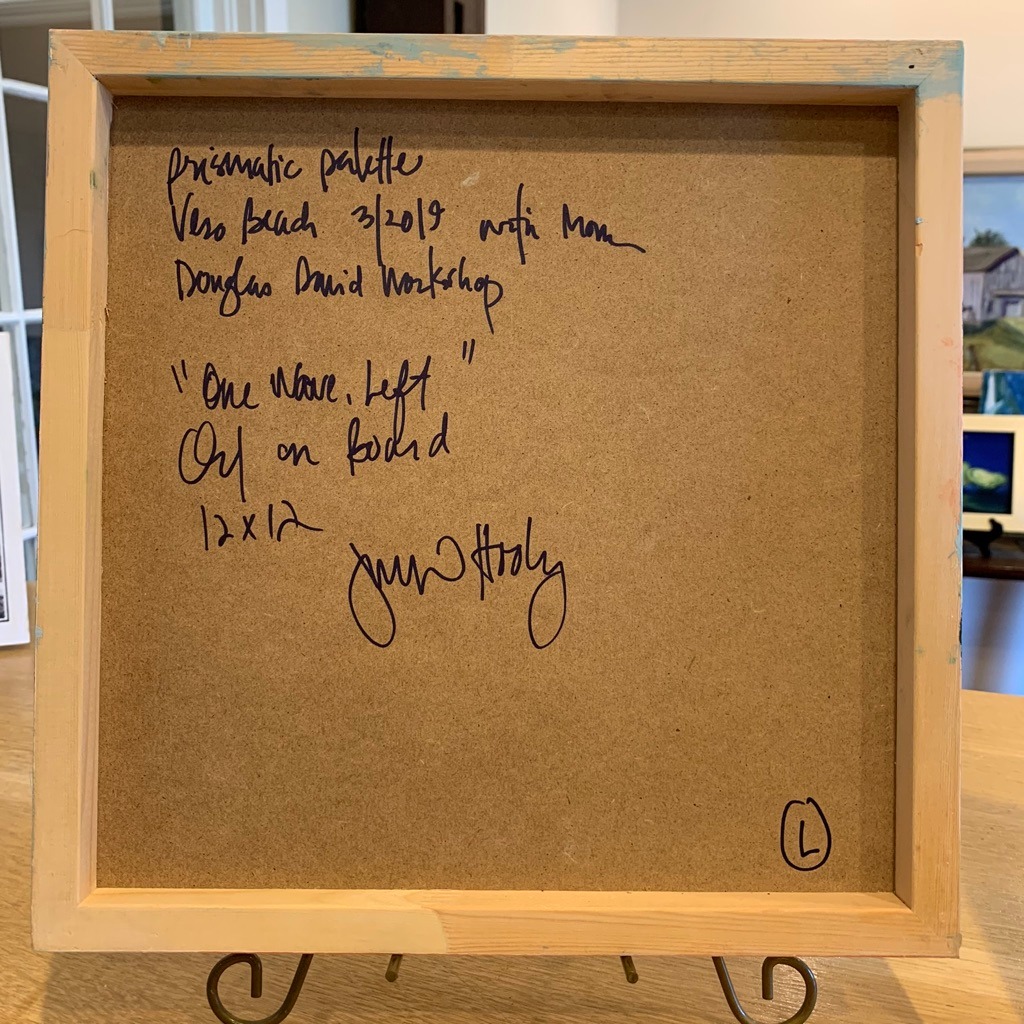 prismatic palette
Vero Beach 3/2019 with Mom
Douglas David Workshop
"One Wave, Left"
Oil on Board
12x12
L